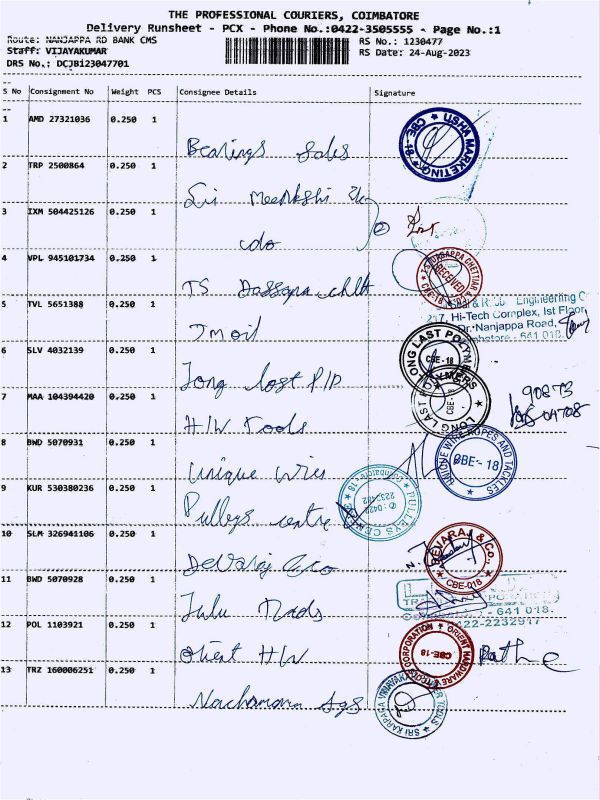 THE PROFESSIONAL COURIERS, COIMBATORE
Delivery Runsheet - PCX - Phone No.:0422-3505555 - Page No.:1
Route: NANJAPPA RD BANK CMS
RS No.: 1230477
Staff: VIJAYAKUMAR
RS Date: 24-Aug-2023
DRS No.: DCJBi23047701
S No Consignment No Weight PCS Consignee Details Signature
1 AMD 27321036 0.250 1
Bearings Sales
USHA MARKETING CBE-18
2 TRP 2500864 0.250 1
Sri Meenkshi
3 IXM 504425126 0.250 1
cdo
4 VPL 945101734 0.250 1
TS Dassapa chtt
RECEIVED
CBE-18
5 TVL 5651388 0.250 1
Engineering
217, Hi-Tech Complex, Ist Floor,
Dr. Nanjappa Road,
641 018.
Jmoil
6 SLV 4032139 0.250 1
Long last P/P
LONG LAST POLYMERS CBE-18
7 MAA 104394420 0.250 1
H/W Tools
LONG LAST POLYMERS CBE-18
90873
04708
8 BWD 5070931 0.250 1
Unique wires
UNIQUE WIRE ROPES AND TACKLES CBE-18
9 KUR 530380236 0.250 1
Pulleys centre
PULLEYS CENTRE Coimbatore-18
10 SLM 326941106 0.250 1
Devaraj &co
DEVARAJ & CO., CBE-018
11 BWD 5070928 0.250 1
Tulu Trads
641 018.
0422-2232917
12 POL 1103921 0.250 1
Orient H/W
ORIENT HARDWARE CORPORATION CBE-18
13 TRZ 160006251 0.250 1
Nachammai Ags
SRI KARPAGA VINAYAKA TOOLS